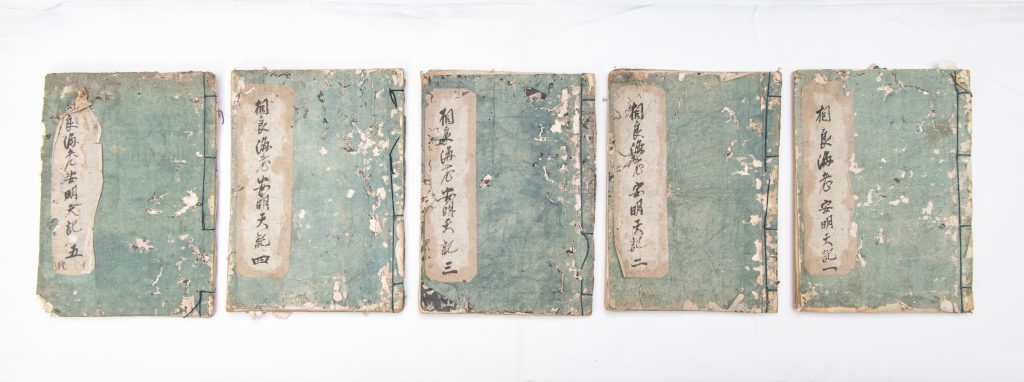 相良海老 安明天記 一
相良海老 安明天記 二
相良海老 安明天記 三
相良海老 安明天記 四
良海老 安明天記 五